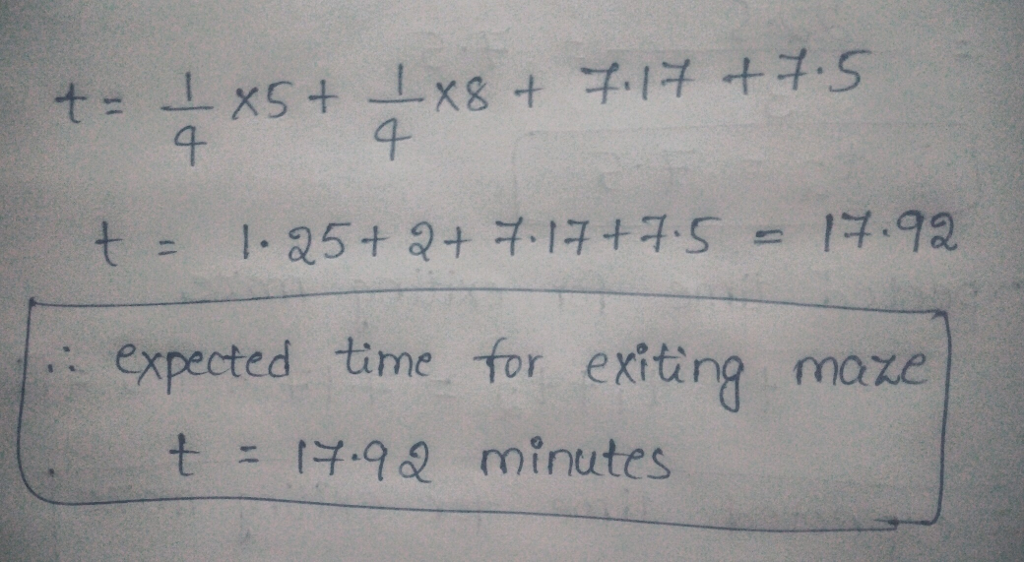 t = 1/4 x5 + 1/4 x8 + 7.17 + 7.5
t = 1.25 + 2 + 7.17 + 7.5 = 17.92
∴ expected time for exiting maze
t = 17.92 minutes